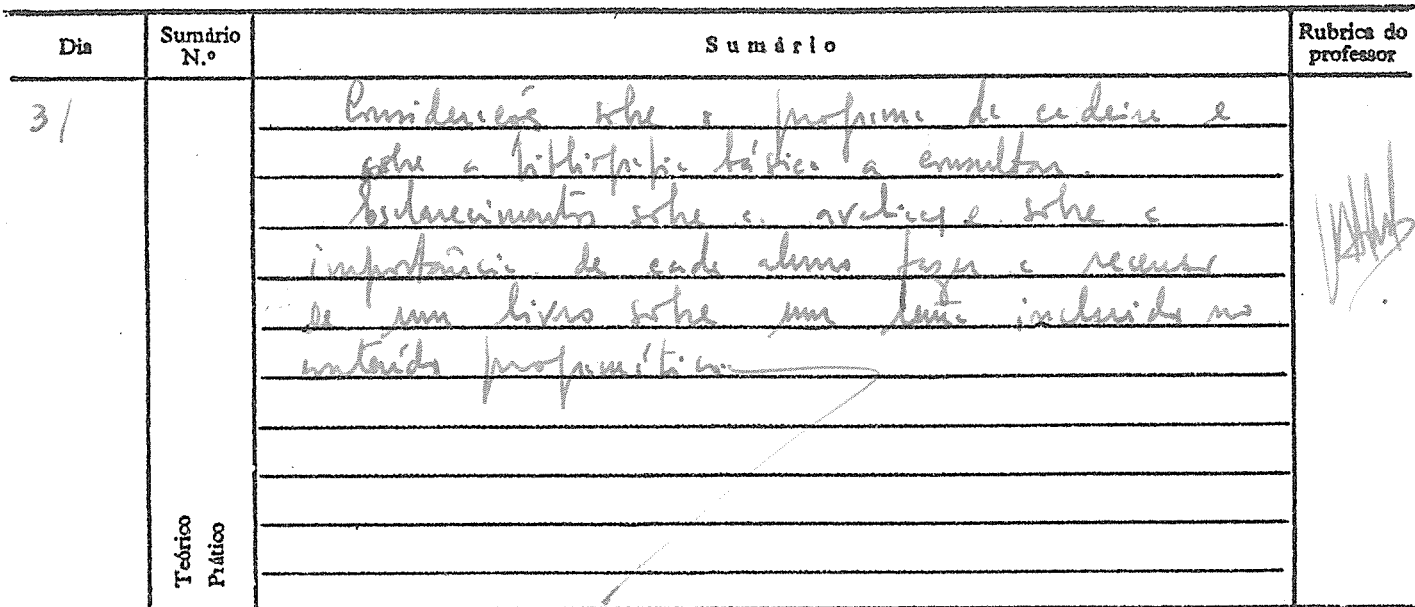 Dia
Sumário N.º
Sumário
Rubrica do professor
3/
Considerações sobre o programa da cadeira e
sobre a bibliografia básica a consultar.
Esclarecimentos sobre a avaliação e sobre a
importância de cada aluno fazer a recensão
de um livro sobre um tema incluido no
conteúdo programático
Teórico
Prático